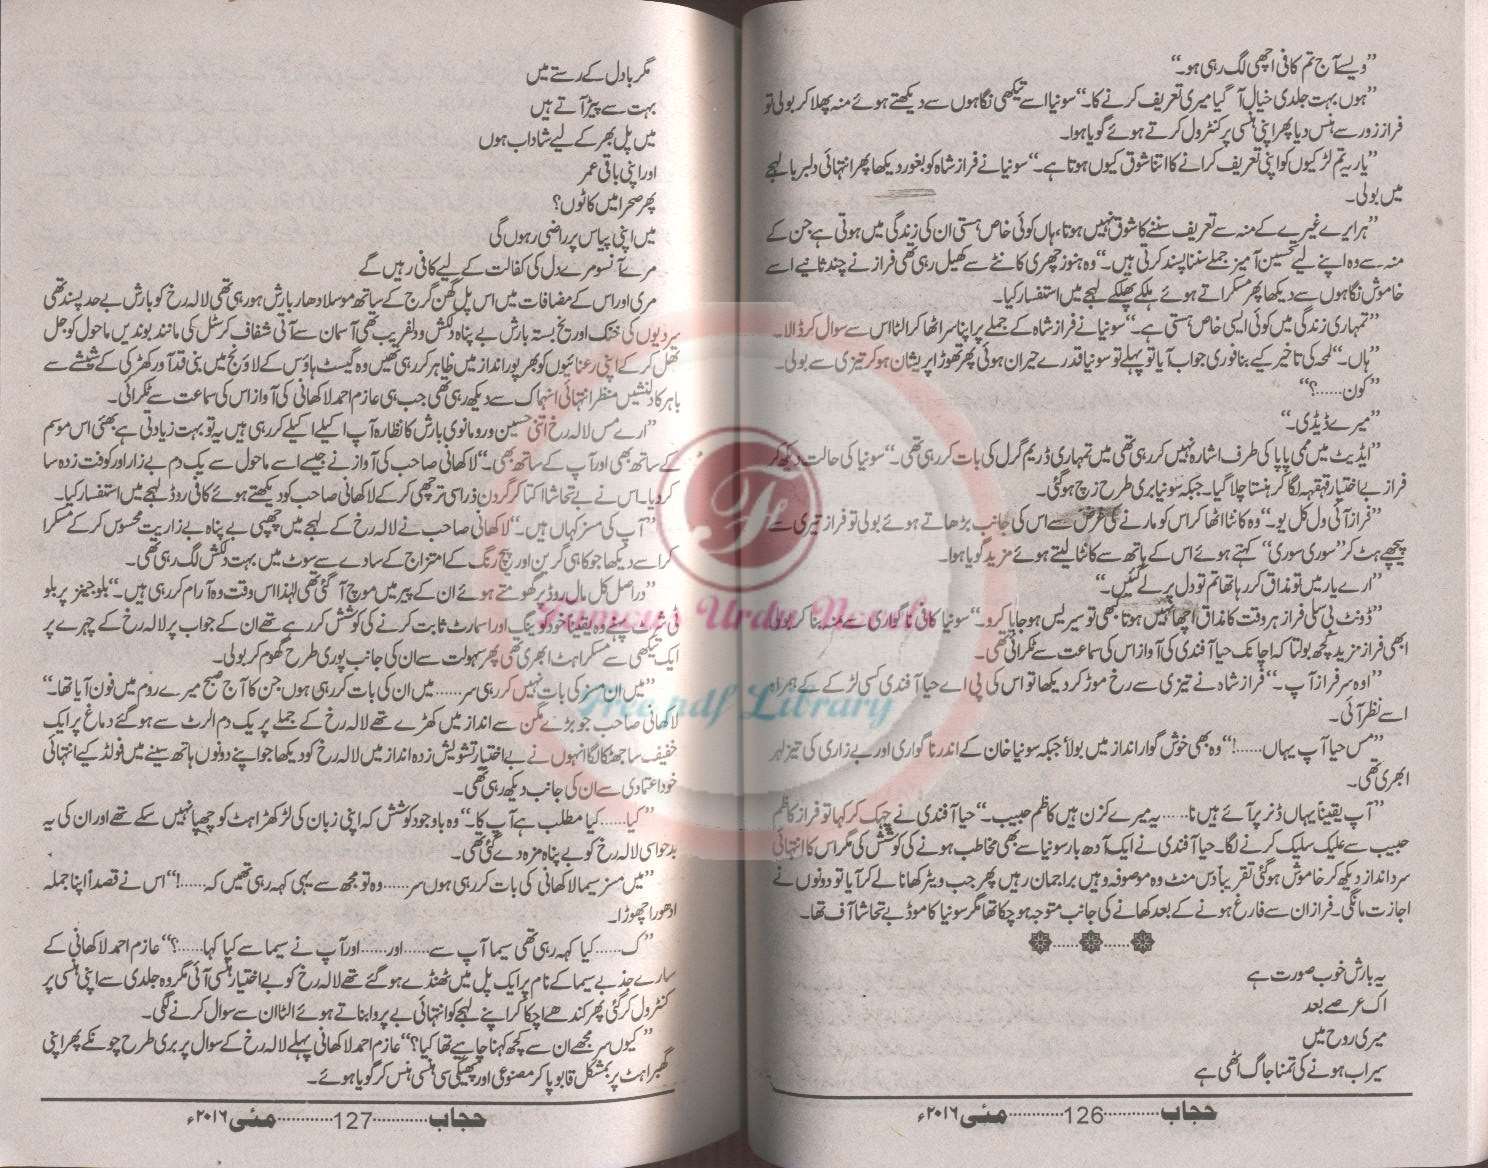 ”ویسے آج تم کافی اچھی لگ رہی ہو۔“
”ہوں بہت جلدی خیال آ گیا میری تعریف کرنے کا۔“ سونیا اسے تیکھی نگاہوں سے دیکھتے ہوئے منہ پھلا کر بولی تو
فراز زور سے ہنس دیا پھر اپنی ہنسی پر کنٹرول کرتے ہوئے گویا ہوا۔
”یار یہ تم لڑکیوں کو اپنی تعریف کرانے کا اتنا شوق کیوں ہوتا ہے۔“ سونیا نے فراز شاہ کو بغور دیکھا پھر انتہائی دلبریا لہجے
میں بولی۔
”ہر ایرے غیرے کے منہ سے تعریف سننے کا شوق نہیں ہوتا، ہاں کوئی خاص ہستی ان کی زندگی میں ہوتی ہے جن کے
منہ سے وہ اپنے لیے تحسین آمیز جملے سننا پسند کرتی ہیں۔“ وہ ہنوز چھری کانٹے سے کھیل رہی تھی فراز نے چند ثانیے اسے
خاموش نگاہوں سے دیکھا پھر مسکراتے ہوئے ہلکے پھلکے لہجے میں استفسار کیا۔
”تمہاری زندگی میں کوئی ایسی خاص ہستی ہے۔“ سونیا نے فراز شاہ کے جملے پر اپنا سر اٹھا کر الٹا اس سے سوال کر ڈالا۔
”ہاں۔“ لمحہ کی تاخیر کیے بنا فوری جواب آیا تو پہلے تو سونیا قدرے حیران ہوئی پھر تھوڑا پریشان ہو کر تیزی سے بولی۔
”کون......؟“
”میرے ڈیڈی۔“
”ایڈیٹ میں ممی پاپا کی طرف اشارہ نہیں کر رہی تھی میں تمہاری ڈریم گرل کی بات کر رہی تھی۔“ سونیا کی حالت دیکھ کر
فراز بے اختیار قہقہہ لگا کر ہنستا چلا گیا۔ جبکہ سونیا بری طرح زچ ہو گئی۔
”فراز آئی ول کل یو۔“ وہ کانٹا اٹھا کر اس کو مارنے کی غرض سے اس کی جانب بڑھاتے ہوئے بولی تو فراز تیزی سے
پیچھے ہٹ کر ”سوری سوری“ کہتے ہوئے اس کے ہاتھ سے کانٹا لیتے ہوئے مزید گویا ہوا۔
”ارے یار میں تو مذاق کر رہا تھا تم تو دل پر لے گئیں۔“
”ڈونٹ بی سلی فراز ہر وقت کا مذاق اچھا نہیں ہوتا کبھی تو سیریس ہو جایا کرو۔“ سونیا کافی ناگواری سے منہ بنا کر بولی
ابھی فراز مزید کچھ بولتا کہ اچانک حیا آفندی کی آواز اس کی سماعت سے ٹکرائی تھی۔
”اوہ سر فراز آپ۔“ فراز شاہ نے تیزی سے رخ موڑ کر دیکھا تو اس کی پی اے حیا آفندی کسی لڑکے کے ہمراہ
اسے نظر آئی۔
”مس حیا آپ یہاں......!“ وہ بھی خوش گوار انداز میں بولا جبکہ سونیا خان کے اندر ناگواری اور بے زاری کی تیز لہر
ابھری تھی۔
”آپ یقیناً یہاں ڈنر پر آئے ہیں نا...... یہ میرے کزن ہیں کاظم حبیب۔“ حیا آفندی نے چہک کر کہا تو فراز کاظم
حبیب سے علیک سلیک کرنے لگا۔ حیا آفندی نے ایک آدھ بار سونیا سے بھی مخاطب ہونے کی کوشش کی مگر اس کا انتہائی
سرد انداز دیکھ کر خاموش ہو گئی تقریباً دس منٹ وہ موصوفہ وہیں براجمان رہیں پھر جب ویٹر کھانا لے کر آیا تو دونوں نے
اجازت مانگی۔ فراز ان سے فارغ ہونے کے بعد کھانے کی جانب متوجہ ہو چکا تھا مگر سونیا کا موڈ بے تحاشا آف تھا۔
یہ بارش خوب صورت ہے
اک عرصے بعد
میری روح میں
سیراب ہونے کی تمنا جاگ اٹھی ہے
حجاب ............ 126 ............ مئی ۲۰۱۶ء
مگر بادل کے رستے میں
بہت سے پیڑ آتے ہیں
میں پل بھر کے لیے شاداب ہوں
اور اپنی باقی عمر
پھر صحرا میں کاٹوں؟
میں اپنی پیاس پر راضی رہوں گی
مرے آنسو مرے دل کی کفالت کے لیے کافی رہیں گے
مری اور اس کے مضافات میں اس پل گھن گرج کے ساتھ موسلا دھار بارش ہو رہی تھی لالہ رخ کو بارش بے حد پسند تھی
سردیوں کی خنک اور یخ بستہ بارش بے پناہ دلکش و دلفریب تھی آسمان سے آتی شفاف کرسٹل کی مانند بوندیں ماحول کو جل
تھل کر کے اپنی رعنائیوں کو بھرپور انداز میں ظاہر کر رہی تھیں وہ گیسٹ ہاؤس کے لاؤنج میں بنی قد آور کھڑکی کے شیشے سے
باہر کا دلنشیں منظر انتہائی انہماک سے دیکھ رہی تھی جب ہی عازم احمد لاکھانی کی آواز اس کی سماعت سے ٹکرائی۔
”ارے مس لالہ رخ اتنی حسین و رومانوی بارش کا نظارہ آپ اکیلے اکیلے کر رہی ہیں یہ تو بہت زیادتی ہے بھئی اس موسم
کے ساتھ بھی اور آپ کے ساتھ بھی۔“ لاکھانی صاحب کی آواز نے جیسے اسے ماحول سے یک دم بے زار اور کوفت زدہ سا
کر دیا۔ اس نے بے تحاشا اکتا کر گردن ذرا سی ترچھی کر کے لاکھانی صاحب کو دیکھتے ہوئے کافی روڈ لہجے میں استفسار کیا۔
”آپ کی مسز کہاں ہیں۔“ لاکھانی صاحب نے لالہ رخ کے لہجے میں چھپی بے پناہ بے زاریت محسوس کر کے مسکرا
کر اسے دیکھا جو کاہی گرین اور پیچ رنگ کے امتزاج کے سادے سے سوٹ میں بہت دلکش لگ رہی تھی۔
”دراصل کل مال روڈ پر گھومتے ہوئے ان کے پیر میں موچ آ گئی تھی لہٰذا اس وقت وہ آرام کر رہی ہیں۔“ بلو جینز پر بلو
ٹی شرٹ پہنے وہ یقیناً خود کو ینگ اور اسمارٹ ثابت کرنے کی کوشش کر رہے تھے ان کے جواب پر لالہ رخ کے چہرے پر
ایک تیکھی سے مسکراہٹ ابھری تھی پھر سہولت سے ان کی جانب پوری طرح گھوم کر بولی۔
”میں ان مسز کی بات نہیں کر رہی سر...... میں ان کی بات کر رہی ہوں جن کا آج صبح میرے روم میں فون آیا تھا۔“
لاکھانی صاحب جو بڑے مگن سے انداز میں کھڑے تھے لالہ رخ کے جملے پر یک دم الرٹ سے ہو گئے دماغ پر ایک
خفیف سا جھٹکا لگا انہوں نے بے اختیار تشویش زدہ انداز میں لالہ رخ کو دیکھا جو اپنے دونوں ہاتھ سینے میں فولڈ کیے انتہائی
خود اعتمادی سے ان کی جانب دیکھ رہی تھی۔
”کیا...... کیا مطلب ہے آپ کا۔“ وہ باوجود کوشش کہ اپنی زبان کی لڑکھڑاہٹ کو چھپا نہیں سکے تھے اور ان کی یہ
بدحواسی لالہ رخ کو بے پناہ مزہ دے گئی تھی۔
”میں مسز سیما لاکھانی کی بات کر رہی ہوں سر...... وہ تو مجھ سے یہی کہہ رہی تھیں کہ......!“ اس نے قصداً اپنا جملہ
ادھورا چھوڑا۔
”ک...... کیا کہہ رہی تھی سیما آپ سے...... اور...... اور آپ نے سیما سے کیا کہا......؟“ عازم احمد لاکھانی کے
سارے جذبے سیما کے نام پر ایک پل میں ٹھنڈے ہو گئے تھے لالہ رخ کو بے اختیار ہنسی آئی مگر وہ جلدی سے اپنی ہنسی پر
کنٹرول کر گئی پھر کندھے اچکا کر اپنے لہجے کو انتہائی بے پروا بناتے ہوئے الٹا ان سے سوال کرنے لگی۔
”کیوں سر مجھے ان سے کچھ کہنا چاہیے تھا کیا؟“ عازم احمد لاکھانی پہلے لالہ رخ کے سوال پر بری طرح چونکے پھر اپنی
گھبراہٹ پر بمشکل قابو پا کر مصنوعی اور پھیکی سی ہنسی ہنس کر گویا ہوئے۔
حجاب ............ 127 ............ مئی ۲۰۱۶ء
Famous Urdu Novels
Free pdf Library